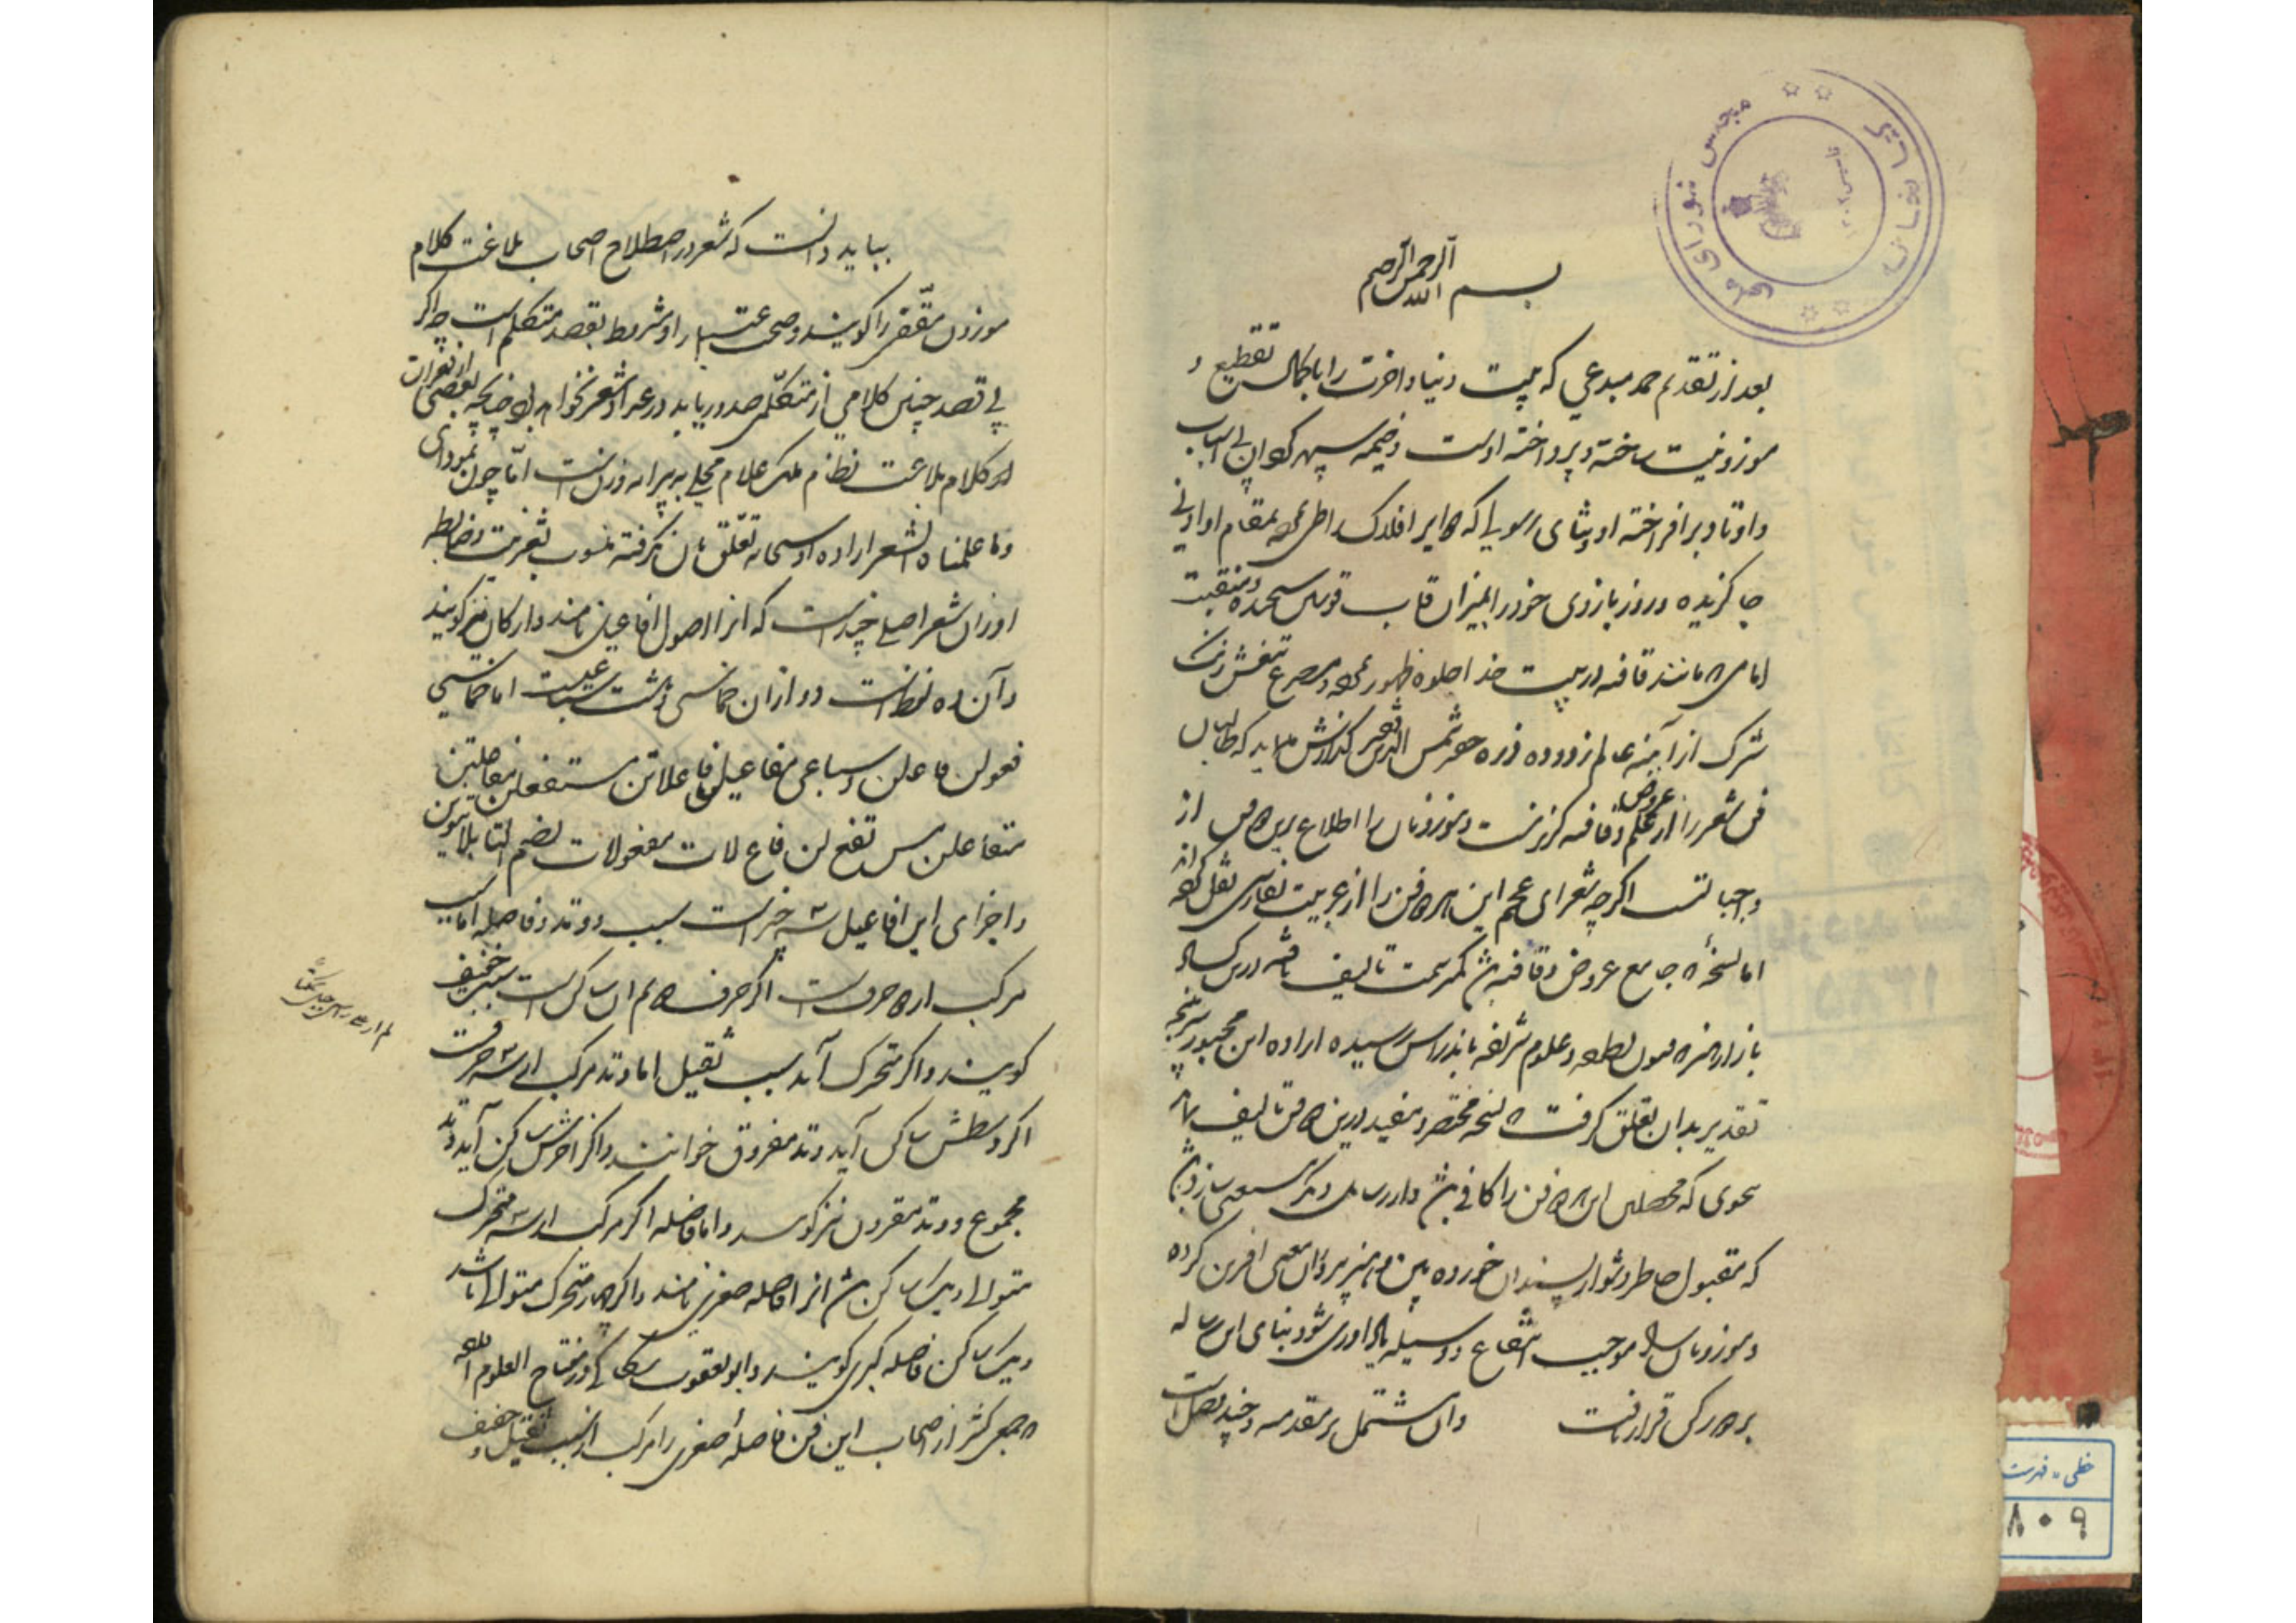 بسم الله الرحمن الرحیم
بعد از تقدیم حمد مبدعی که بیت دنیا و اخرت را با کمال تقطیع و
موزونیت ساخته و پرداخته اوست و خیمه سپهر کوان بی اسباب
و اوتاد بر افراخته او و ثنای رسولی که دایر افلاک را طی نموده بمقام او ادنی
جا گزیده و روز بازوی خود را بمیزان قاب قوسین سنجیده و منقبت
امامی که مانند قافیه در بیت خدا جلوه ظهور نموده و مصرع تیغش زنک
شرک از آینه عالم زدوده ذره حو شمس الدین فقیر گذارش می نماید که طالبان
فن شعر را از علم عروض و قافیه گزیر نیست و موزونان را اطلاع برین فن از
واجباتست اگرچه شعرای عجم این هر دو فن را از عربیت بفارسی نقل کرده اند
اما نسخه که جامع عروض و قافیه باشد کمتر سمت تالیف یافته درین
بازار فنون لطیفه و علوم شریفه باندراس رسیده اراده این مجبور سرپنجه
تقدیر بدان تعلق گرفت که نسخه مختصر و مفید درین دو فن تالیف نماید
بنحوی که محصلین این هر دو فن را کافی باشد و از رسایل دیگر مستغنی سازد و باشد
که مقبول خاطر دشوار پسندان خورده بین و هنرپروران معنی افرین کرده
و موزونان را موجب انتفاع و وسیله یاد اوری شود بنای این رساله
بر دو رکن قرار یافت و ان مشتمل بر مقدمه و چند فصل است
بباید دانست که شعر در اصطلاح اصحاب بلاغت کلام
موزون مقفی را گویند و صحت اعتبار او مشروط بقصد متکلم است چه اگر
بی قصد چنین کلامی از متکلمی صدور یابد در عداد شعر نخواهد بود چنانچه بعضی از فقرات
کلام بلاغت نظام ملک علام محلی به پیرایه وزن است اما چون بمودای
وما علمناه الشعر اراده او سبحانه تعلق بان نگرفته منسوب بشعر نیست و ضابطه
اوزان شعر اصلی چند است که انرا اصول افاعیل نامند و ارکان نیز گویند
و آن ده لفظ است دو ازان خماسی و هشت سباعیست اما خماسی
فعولن فاعلن و سباعی مفاعیلن فاعلاتن مستفعلن مفاعلتن
متفاعلن مس تفع لن فاع لاتن مفعولات بضم التا بلا تنوین
و اجزای این افاعیل سه چیز است سبب و وتد و فاصله اما سبب
مرکب از دو حرفست اگر حرف دویم ان ساکن است سبب خفیف
گویند و اگر متحرک آید سبب ثقیل اما وتد مرکب از سه حرفست
اگر وسطش ساکن آید وتد مفروق خوانند و اگر اخرش ساکن آید وتد
مجموع و وتد مقرون نیز گویند و اما فاصله اگر مرکب از سه متحرک
متوالی و یک ساکن باشد انرا فاصله صغری نامند و اگر چهار متحرک متوالی باشد
و یک ساکن فاصله کبری گویند و ابو یعقوب سکاکی در مفتاح العلوم
جمعی کثیر از اصحاب این فن فاصله صغری را مرکب از سبب ثقیل و خفیف
کتابخانه
مجلس شورای ملی
خطی - فهرست
۸۰۹